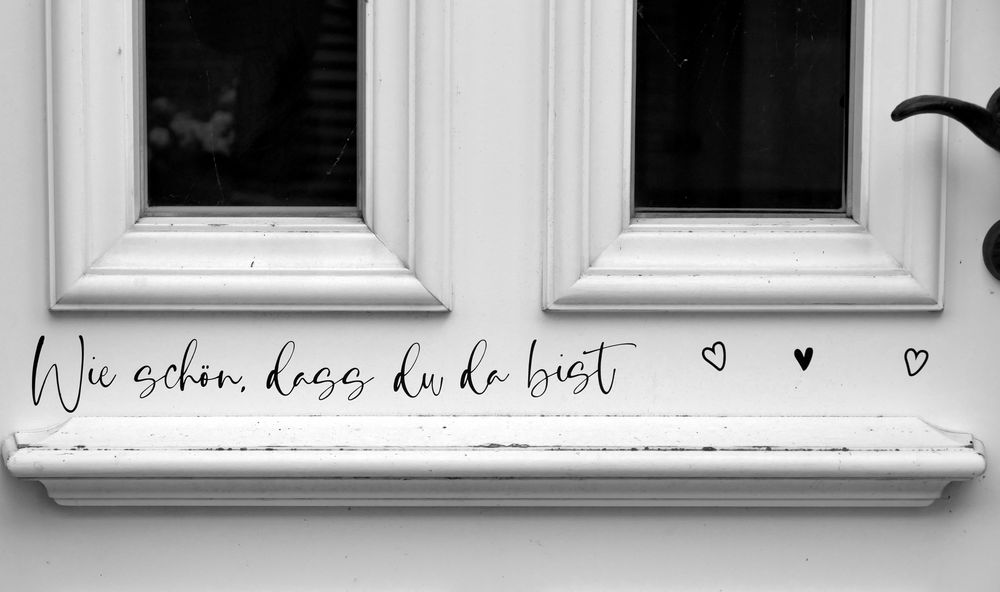 Wie schön, dass du da bist